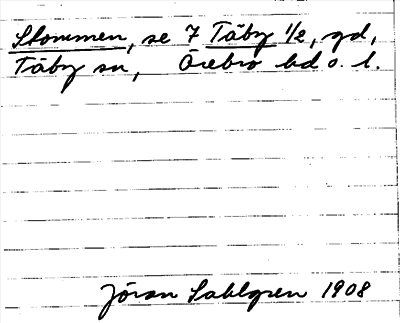 Slommen, se 7 Täby 1/2, gd,
Täby sn, Örebro hd o. l.
Jöran Sahlgren 1908